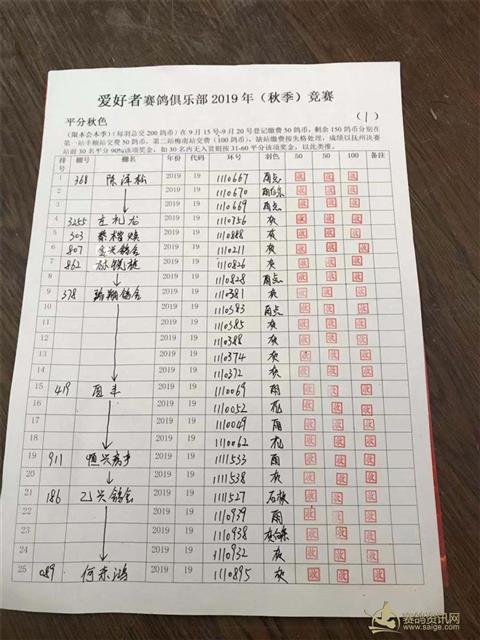 爱好者赛鸽俱乐部2019年（秋季）竞赛
平分秋色
（1）
（限本会本季）（每羽总交200鸽币）在9月15号-9月20号登记缴费50鸽币，剩余150鸽币分别在
第一站丰顺站交费50鸽币，第二站梅南站交费（100鸽币），缺站缴费按失格处理，成绩以抚州决赛
站前30名平分90%该项奖金，如30名内无入赏则按31-60平分该项奖金，以此类推。
排号 棚号 棚名 年份 代码 环号 羽色 50 50 100 备注
1 368 陈泽松 2019 19 1110667 雨点
2 2019 19 1110670
3 2019 19 1110669 雨点
4 3255 庄礼龙 2019 19 1110756 灰
5 303 2019 19 1110888 灰
6 807 2019 19 1110211 灰
7 862 2019 19 1110826 灰
8 2019 19 1110828 雨点
9 378 翰翔鸽舍 2019 19 1110381 灰
10 2019 19 1110383 雨点
11 2019 19 1110385 灰
12 2019 19 1110388 灰
13 2019 19 1110374 灰
14 2019 19 1110372 灰
15 419 2019 19 1110069 雨
16 2019 19 1110052 花
17 2019 19 1110049 雨
18 2019 19 1110062 花
19 911 2019 19 1111533 雨
20 2019 19 1111538 灰
21 186 2019 19 1111527 石板
22 2019 19 1110939 雨
23 2019 19 1110938
24 2019 19 1110932 灰
25 089 何赤鸿 2019 19 1110895 灰
赛鸽资讯网
www.saige.com